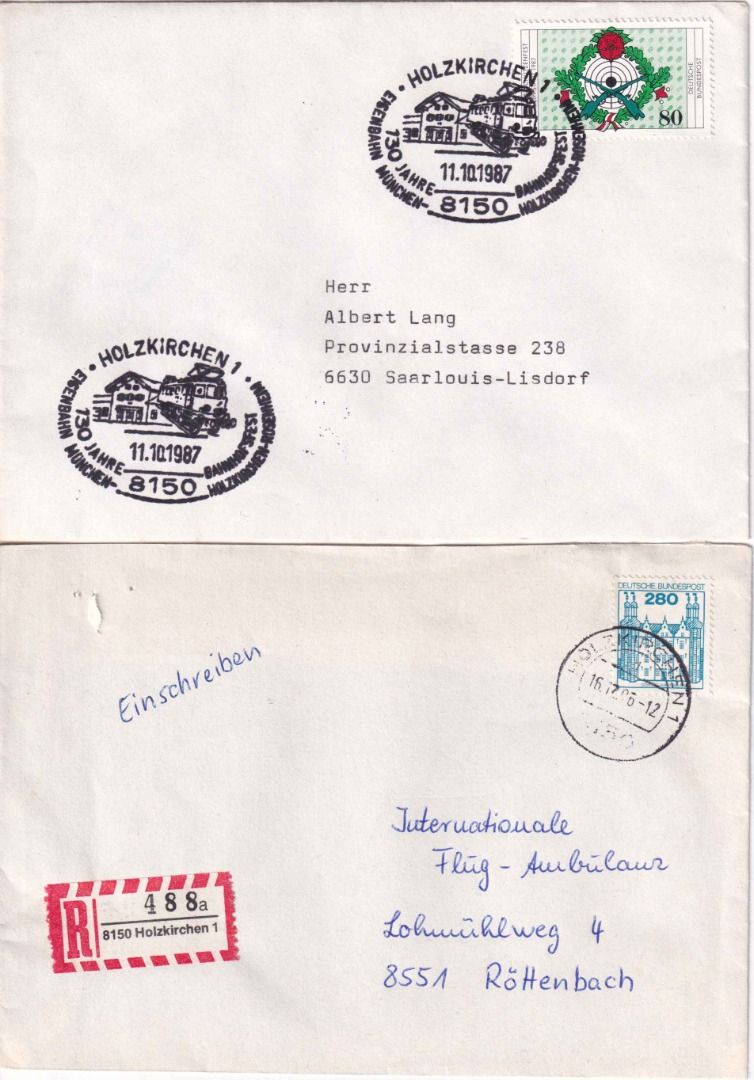 DEUTSCHE BUNDESPOST
80
• HOLZKIRCHEN 1 •
EISENBAHN MÜNCHEN-
HOLZKIRCHEN-ROSENHEIM
130 JAHRE
BAHNHOFSFEST
11.10.1987
8150
Herr
Albert Lang
Provinzialstasse 238
6630 Saarlouis-Lisdorf
• HOLZKIRCHEN 1 •
EISENBAHN MÜNCHEN-
HOLZKIRCHEN-ROSENHEIM
130 JAHRE
BAHNHOFSFEST
11.10.1987
8150
DEUTSCHE BUNDESPOST
280
HOLZKIRCHEN 1
Einschreiben
Internationale
Flug-Ambulanz
Lohmühlweg 4
8551 Röttenbach
R
488a
8150 Holzkirchen 1